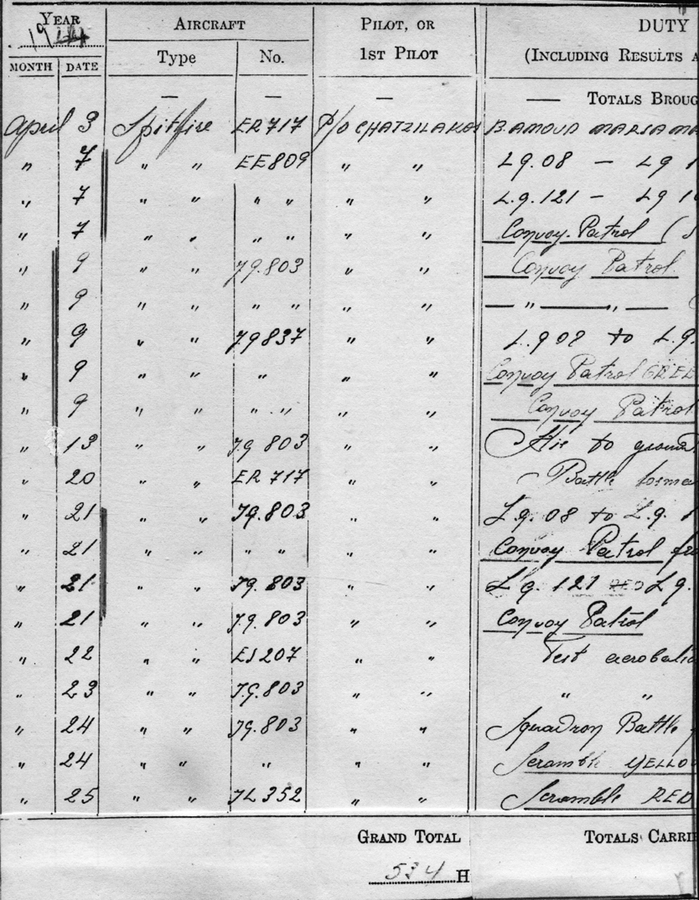 YEAR AIRCRAFT PILOT, OR DUTY
1944 1ST PILOT (INCLUDING RESULTS A
MONTH DATE Type No.
— — — — TOTALS BROUG
April 3 Spitfire ER717 P/O CHATZILAKOS
" 7 " " EE809 " " L.g. 08 — L g 1
" 7 " " " " " " L.g. 121 — L g 1
" 7 " " " " " " Convoy Patrol (
" 9 " " J9.803 " " Convoy Patrol
" 9 " " " " " " — " — " —
" 9 " " J9837 " " L.g 09 to L.g.
" 9 " " " " " Convoy Patrol GREE
" 9 " " " " " " Convoy Patrol
" 13 " " J9 803 " " Air to ground
" 20 " " ER 717 " " Battle forma
" 21 " " J9.803 " " L.g. 08 to L.g. 1
" 21 " " " " " " Convoy Patrol fr
" 21 " " J9 803 " " L.g. 121 L g.
" 21 " " J.9. 803 " " Convoy Patrol
" 22 " " ES207 " " Test aerobatic
" 23 " " J9.803 " " " "
" 24 " " J9.803 " " Squadron Battle
" 24 " " " " " Scramble YELLO
" 25 " " JL352 " " Scramble RED
GRAND TOTAL TOTALS CARRI
534 H